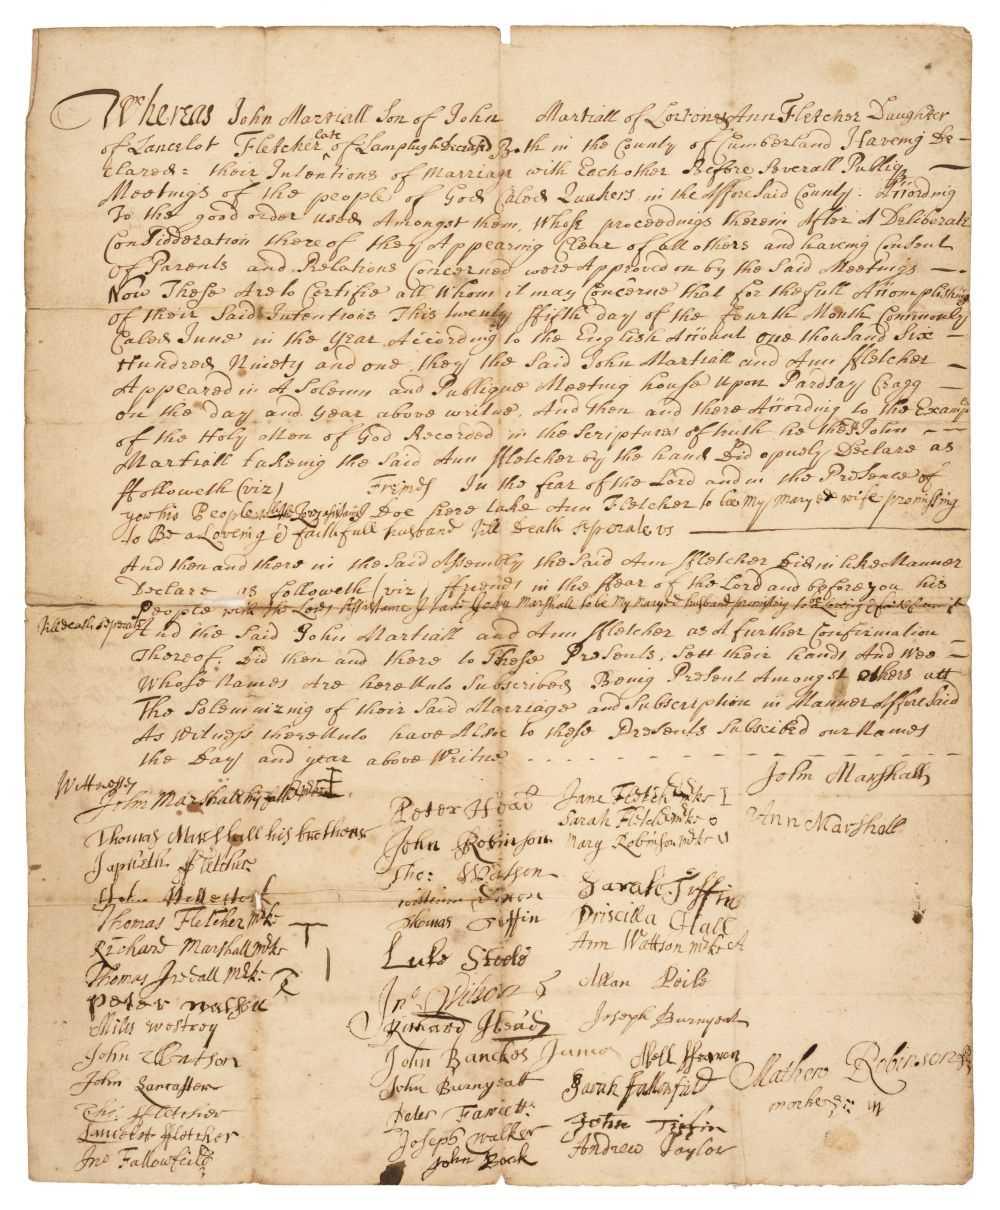 Whereas John Martiall Son of John Martiall of Lorton & Ann Fletcher Daughter
of Lancelot Fletcher late of Lamplugh deceased Both in the County of Cumberland Haveing De-
clared = their Intentions of Marriage with Each other Before Severall Publiq
Meetings of the people of God Caled Quakers in the Afforesaid County: According
To the good order used Amongst them, Whose proceedings therein After A Deliberate
Consideration thereof they Appearing Clear of all others and haveing Consent
of Parents and Relations Concerned were Approved on by the Said Meetings —
Now These Are to Certifie all Whom it may Concerne that for the full Accomplishing
of their Said Intentions This twenty ffifth day of the Fourth Month Commonly
Caled June in the Year According to the English Account one thousand Six —
Hundred Ninety and one, they the Said John Martiall and Ann ffletcher —
Appeared in A Solemn and Publique Meeting house upon Pardsay Cragg —
on the day and Year above writne, And then and there According to the Example
of the Holy Men of God Recorded in the Scriptures of truth he the sd John —
Martiall takeing the Said Ann ffletcher by the hand Did opnely Declare as
ffolloweth (viz) Friends In the fear of the Lord and in the Presence of
you his People I Doe here take Ann Fletcher to bee My Maryed wife promissing
to Be a Loveing & faithfull husband Till Death seperate us
And then and there in the said Assembly the Said Ann ffletcher Did in like Manner
Declare as followeth (viz) ffriends in the ffear of the Lord and before you his
People with the Lords Assistance I take John Marshall to be My Maryed husband promising to be Loveing & faithfull
till death seperate
And the Said John Martiall and Ann ffletcher as A further Confirmation —
Thereof, Did then and there to These Presents, Sett their hands And Wee —
Whose Names Are hereunto Subscribed Being Present Amongst others att
The Solemnizing of their Said Marriage and Subscription in Manner Afforesaid
As Witness thereunto have Also to these Presents Subscribed our Names
the Day and year above Writne
Wittnesses
John Marshall his father
Thomas Marshall his brothers
Japheth Fletcher
John
Thomas Fletcher mrke T
Richard Marshall mrke I
Thomas Iredall mrke
Peter
Miles Wostroy
John Watson
John Lancaster
Tho: Fletcher
Lancelot ffletcher
Jno Fallowfeild
Peter Head
John Robinson
Tho: Watson
William Dixon
Thomas Tiffin
Luke Steele
Jno Wilson
Richard Head
John Banckes Junior
John Burnyeatt
Peter
Joseph Walker
John Bock
Jane Fletcher mrke I
Sarah Fletcher mrke o
Mary Robinson mrke
Sarah Tiffin
Priscilla Hall
Ann Wattson mrke A
Allan Peile
Joseph Burnyeat
Nell
Sarah Fallowfeild
John Tiffin
Andrew Taylor
John Marshall
Ann Marshall
Mathew Robinson
marke